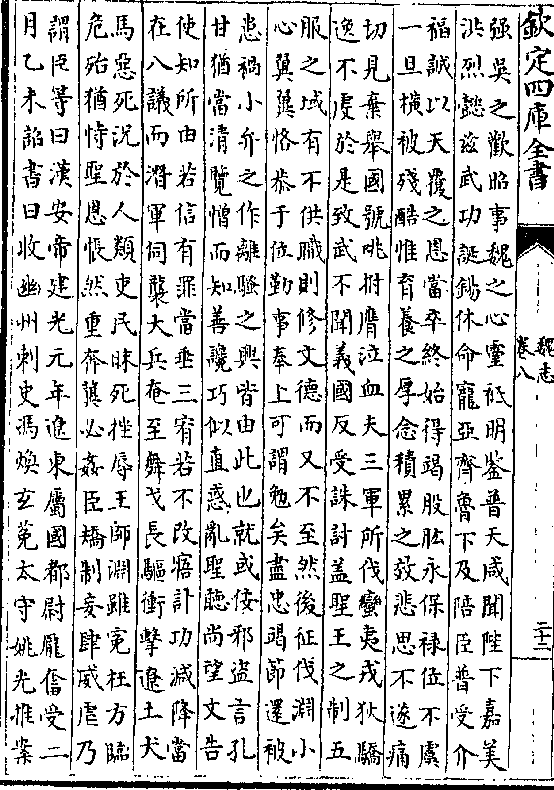 欽定四庫全書
魏志
卷八
二十二
强吳之歡昭事魏之心靈祇明鉴普天咸聞陛下嘉美
洪烈懿兹武功誕錫休命寵亞齊魯下及陪臣普受介
福誠以天覆之恩當卒終始得竭股肱永保禄位不虞
一旦橫被殘酷惟育養之厚念積累之效悲思不遂痛
切見棄舉國號咷拊膺泣血夫三軍所伐蠻夷戎狄驕
逸不虔於是致武不聞義國反受誅討盖聖王之制五
服之域有不供職則修文德而又不至然後征伐淵小
心翼翼恪恭于位勤事奉上可謂勉矣盡忠竭節還被
患禍小弁之作離騷之興皆由此也就或佞邪盗言孔
甘猶當清覽憎而知善讒巧似直惑亂聖聽尚望文告
使知所由若信有罪當垂三宥若不改寤計功減降當
在八議而潛軍伺襲大兵奄至舞戈長驅衝擊遼土犬
馬惡死況於人類吏民昧死挫辱王師淵雖寃枉方臨
危殆猶恃聖恩悵然重奔冀必姦臣矯制妄肆威虐乃
謂臣等曰漢安帝建光元年遼東屬國都尉龎奮受二
月乙未詔書曰收幽州刺史馮煥玄莵太守姚光推案